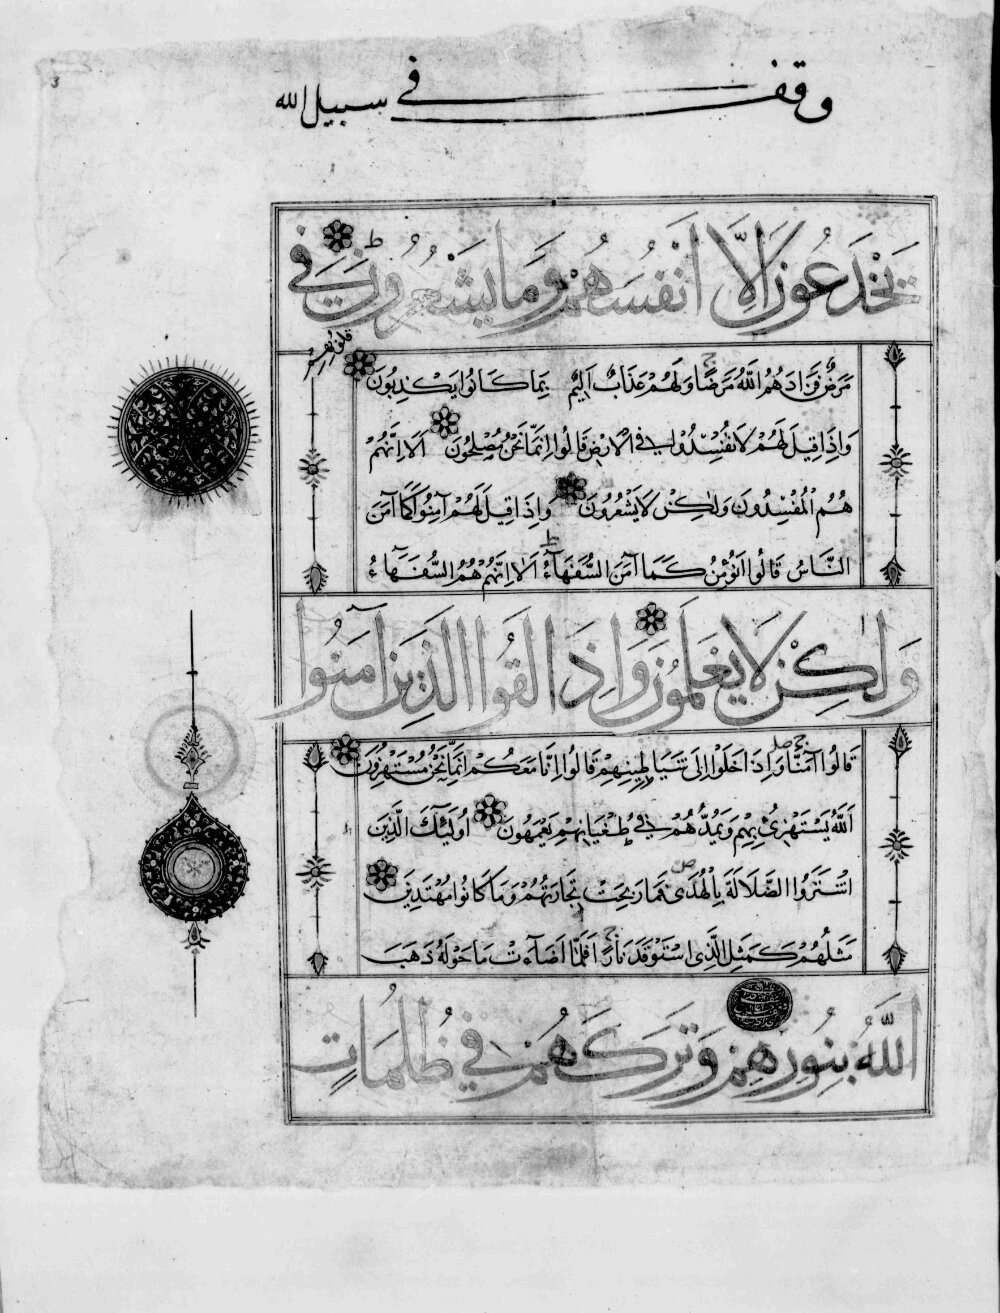 3
وقف في سبيل الله
يَخْدَعُونَ اِلَّا اَنْفُسَهُمْ وَمَا يَشْعُرُونَ ط فِى
قلوبهم
مَرَضٌ فَزَادَهُمُ اللّٰهُ مَرَضًا ج وَلَهُمْ عَذَابٌ اَلِيمٌ بِمَا كَانُوا يَكْذِبُونَ
وَاِذَا قِيلَ لَهُمْ لَا تُفْسِدُوا فِى الْاَرْضِ قَالُوا اِنَّمَا نَحْنُ مُصْلِحُونَ اَلَا اِنَّهُمْ
هُمُ الْمُفْسِدُونَ وَلٰكِنْ لَا يَشْعُرُونَ وَاِذَا قِيلَ لَهُمْ آمِنُوا كَمَا آمَنَ
النَّاسُ قَالُوا اَنُؤْمِنُ كَمَا آمَنَ السُّفَهَآءُ ط اَلَا اِنَّهُمْ هُمُ السُّفَهَآءُ
وَلٰكِنْ لَا يَعْلَمُونَ وَاِذَا لَقُوا الَّذِينَ آمَنُوا
قَالُوا آمَنَّا ج صلى وَاِذَا خَلَوْا اِلٰى شَيَاطِينِهِمْ قَالُوا اِنَّا مَعَكُمْ اِنَّمَا نَحْنُ مُسْتَهْزِؤُنَ
اَللّٰهُ يَسْتَهْزِئُ بِهِمْ وَيَمُدُّهُمْ فِى طُغْيَانِهِمْ يَعْمَهُونَ اُولٰٓئِكَ الَّذِينَ
اشْتَرَوُا الضَّلَالَةَ بِالْهُدٰى ص فَمَا رَبِحَتْ تِجَارَتُهُمْ وَمَا كَانُوا مُهْتَدِينَ
مَثَلُهُمْ كَمَثَلِ الَّذِى اسْتَوْقَدَ نَارًا ج فَلَمَّا اَضَآءَتْ مَا حَوْلَهُ ذَهَبَ
اللّٰهُ بِنُورِهِمْ وَتَرَكَهُمْ فِى ظُلُمَاتٍ